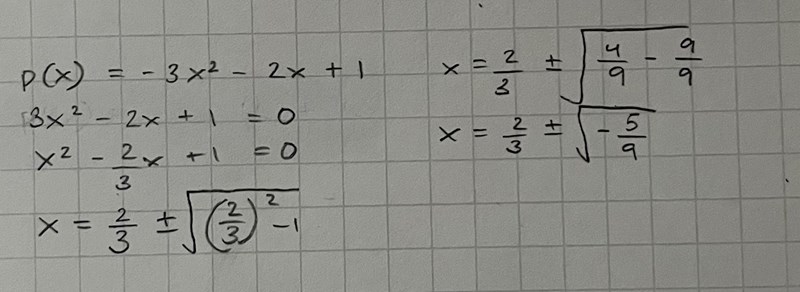 p(x) = - 3x² - 2x + 1
3x² - 2x + 1 = 0
x² - 2/3 x + 1 = 0
x = 2/3 ± √((2/3)² - 1)
x = 2/3 ± √(4/9 - 9/9)
x = 2/3 ± √(- 5/9)